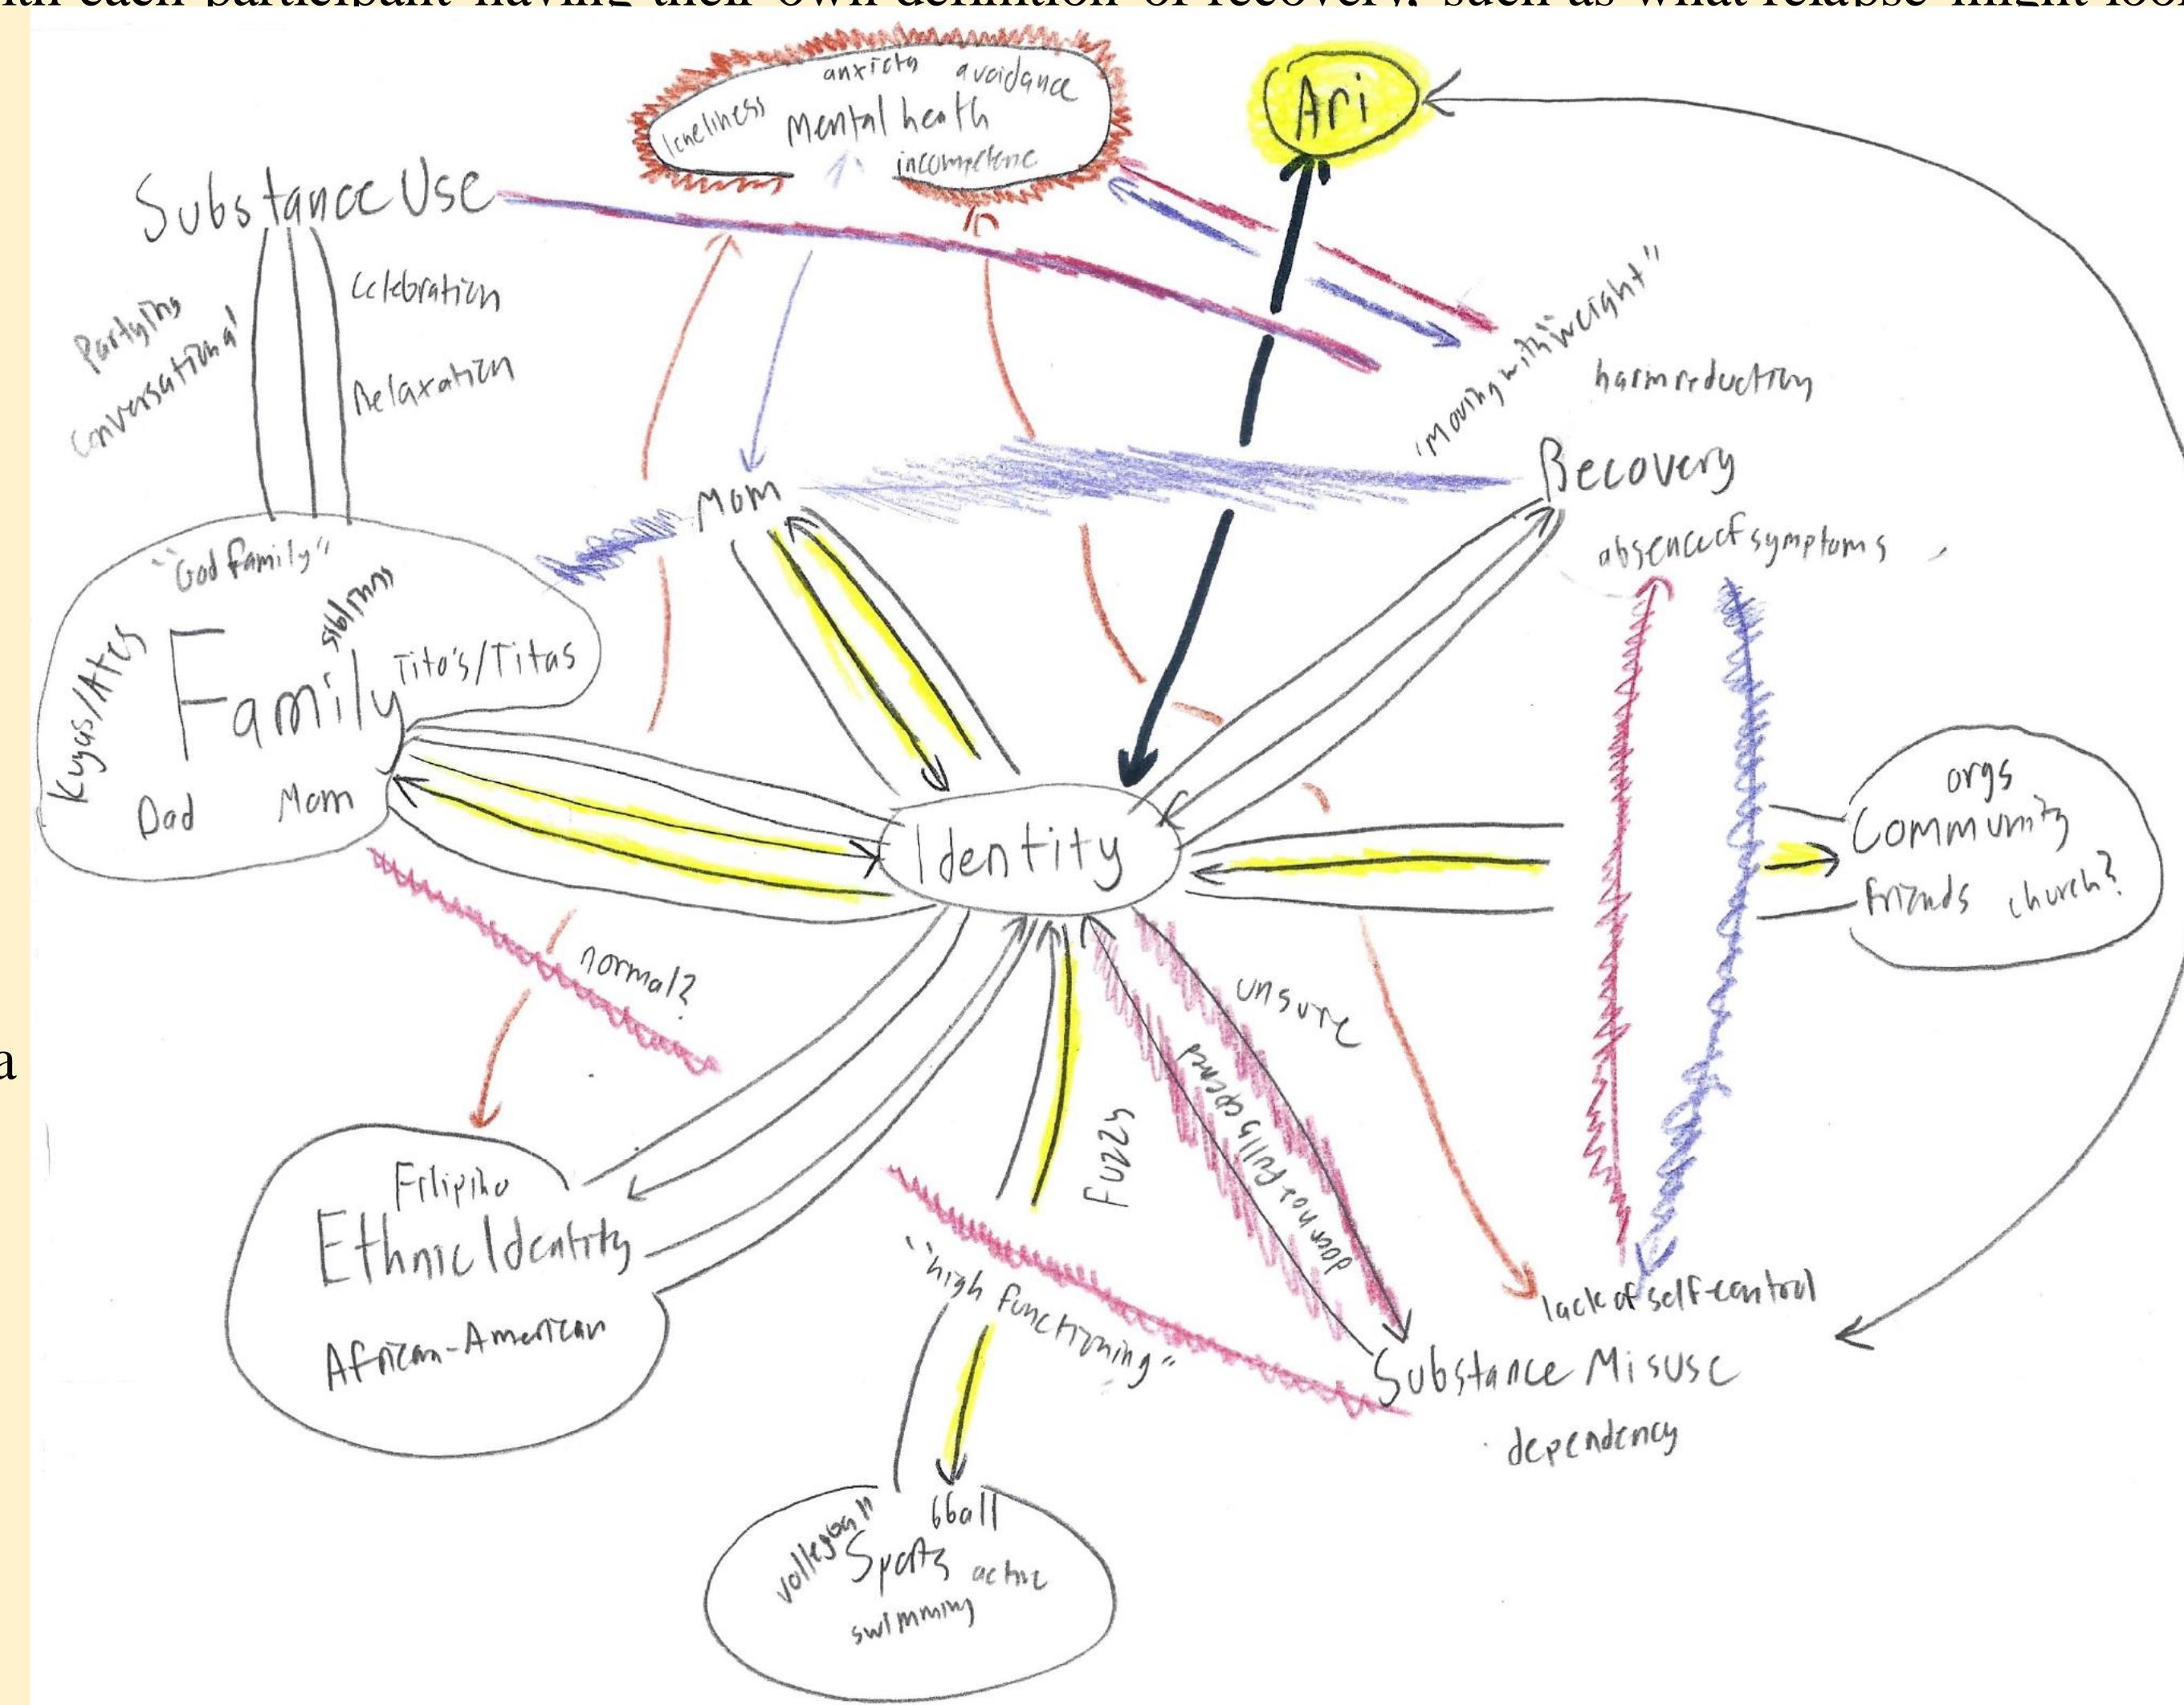 with each participant having their own definition of recovery, such as what relapse might look
a
anxiety avoidance
loneliness Mental heath
incompetenc
Ari
Substance Use
Partying
conversational
Celebration
Relaxation
"Moving with "weight"
harmreduction
Recovery
absence of symptoms
Mom
"God family"
siblings
Kuyas/Ates
Family
Tito's/Titas
Dad Mom
Identity
orgs
Community
friends church?
normal?
unsure
does not fully depend
Fuzzy
Filipino
Ethnic Identity
African-American
"high functioning"
lack of self-control
Substance Misuse
dependency
volleyball
bball
Sports active
swimming